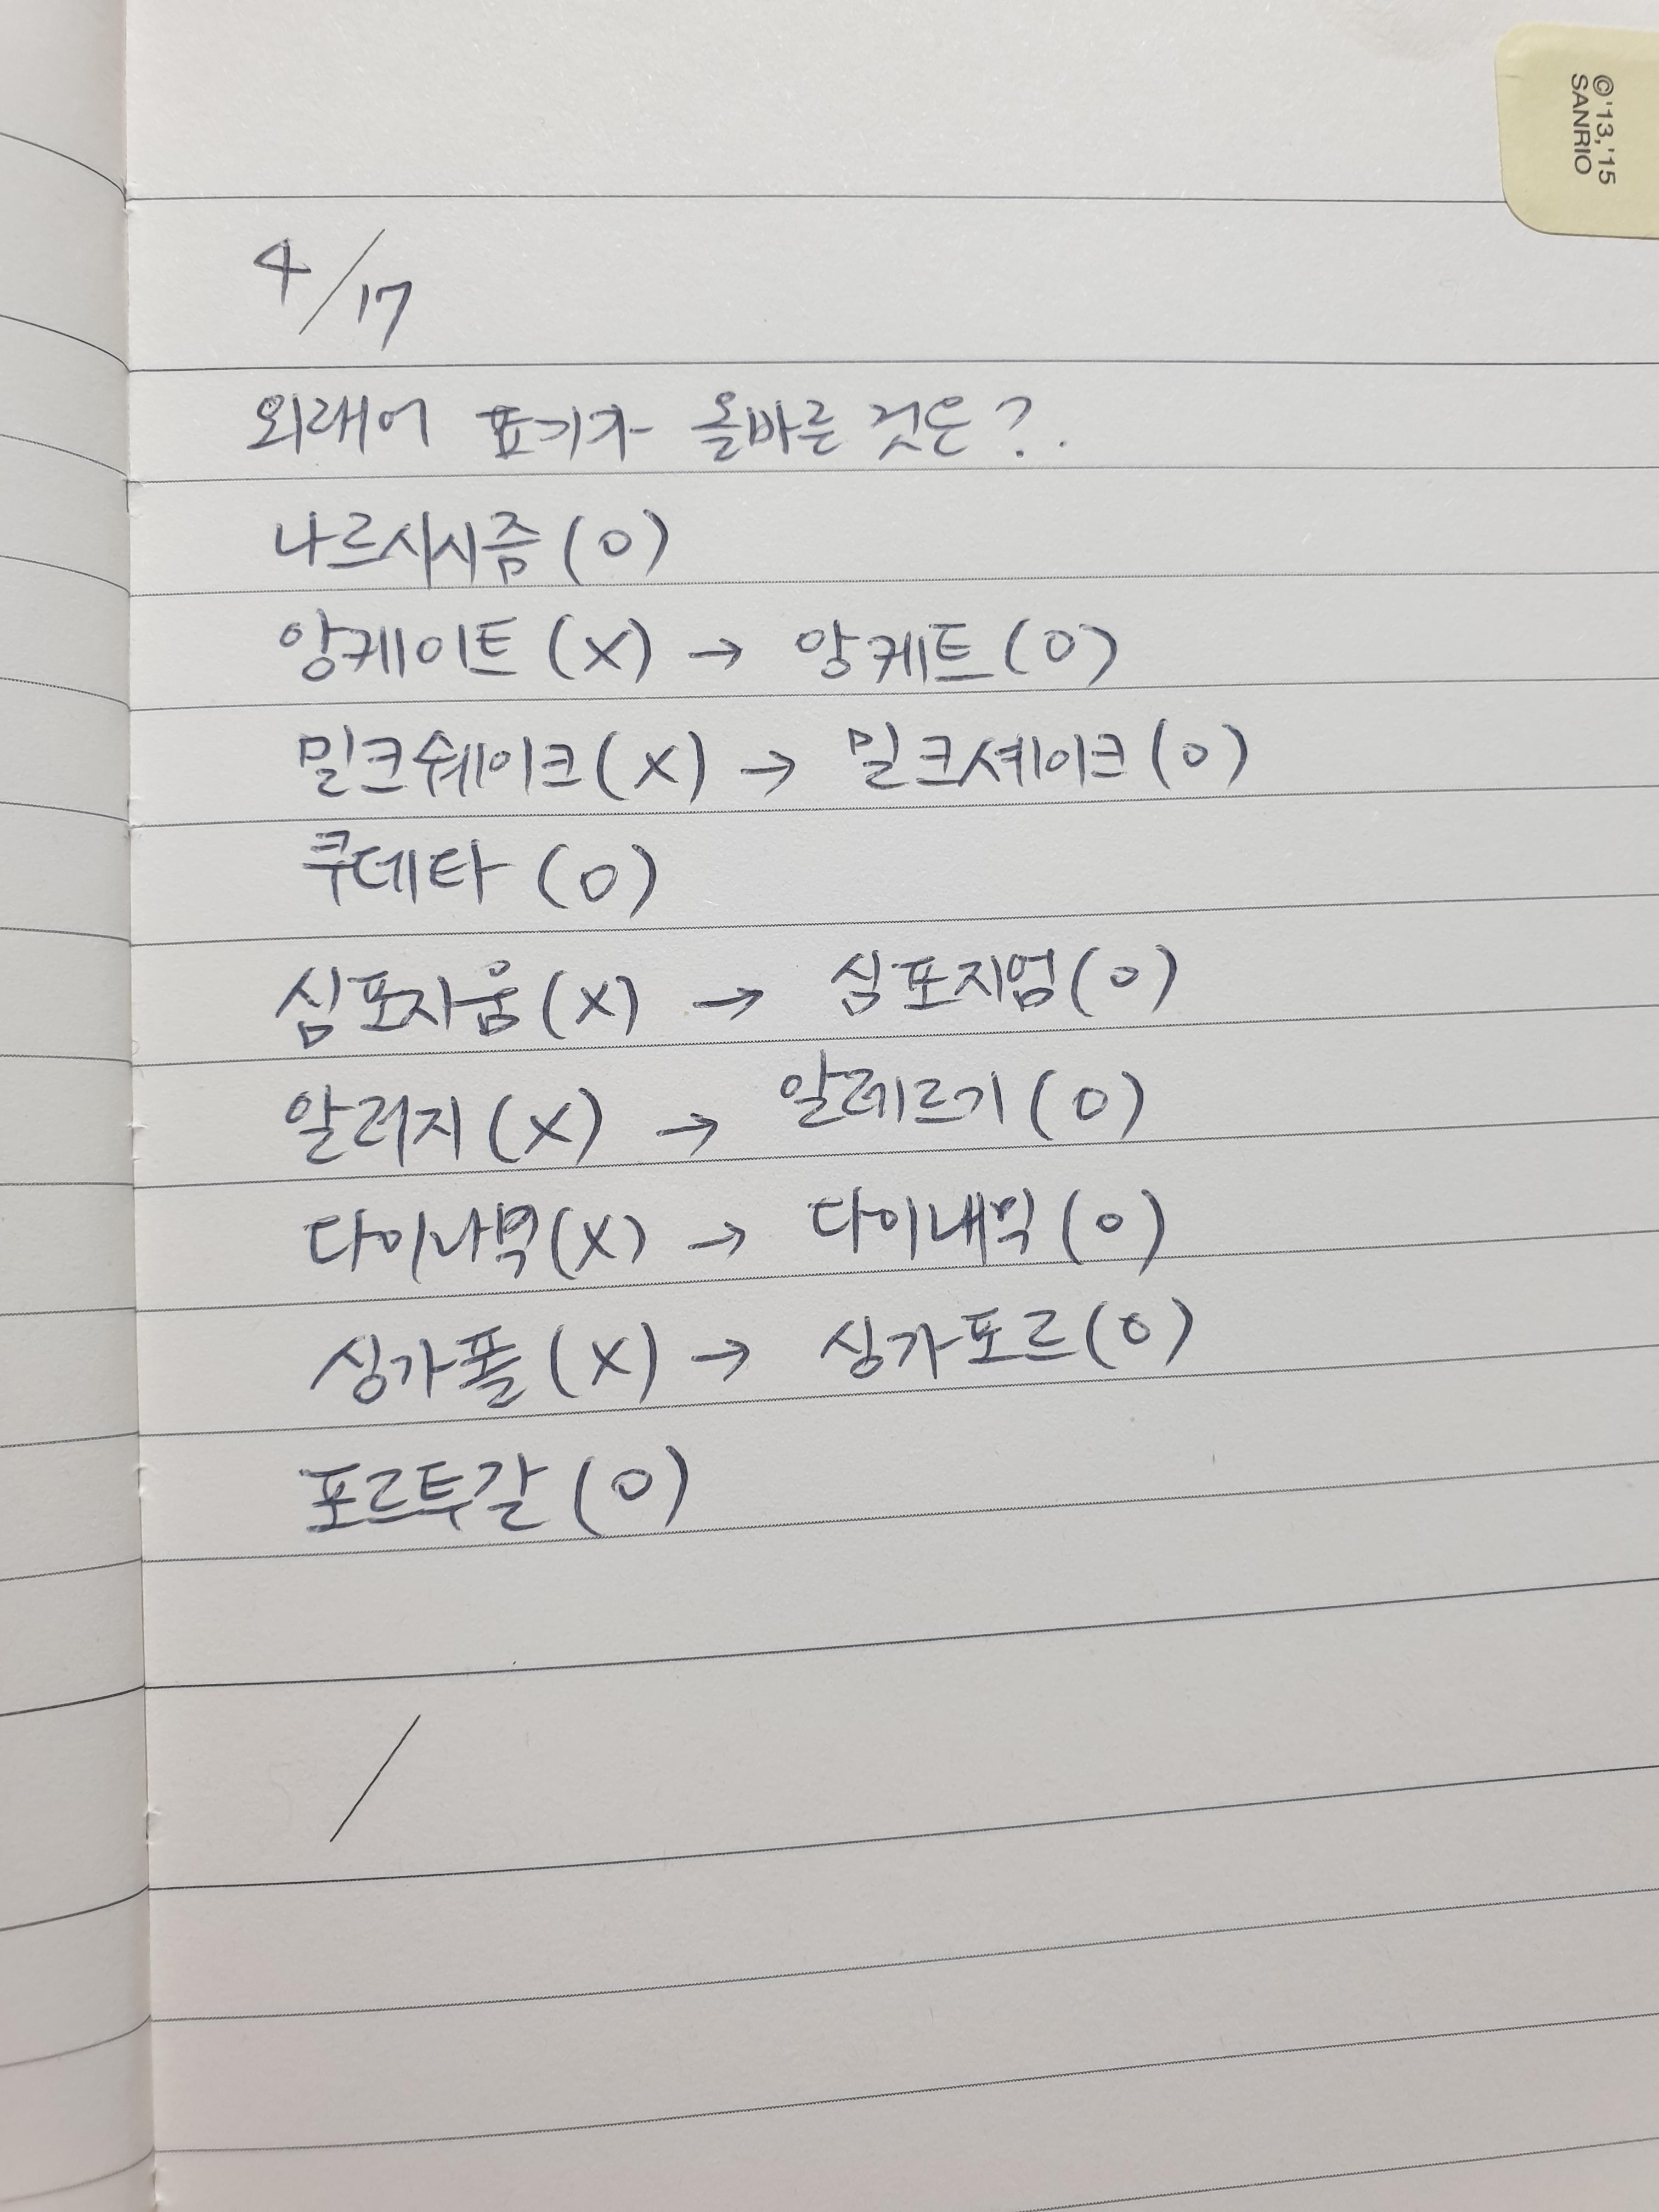 ©'13,'15
SANRIO
4/17
외래어 표기가 올바른 것은?.
나르시시즘(O)
앙케이트(X) → 앙케트(O)
밀크쉐이크(X) → 밀크셰이크(O)
쿠데타(O)
심포지움(X) → 심포지엄(O)
알러지(X) → 알레르기(O)
다이나믹(X) → 다이내믹(O)
싱가폴(X) → 싱가포르(O)
포르투갈(O)
/